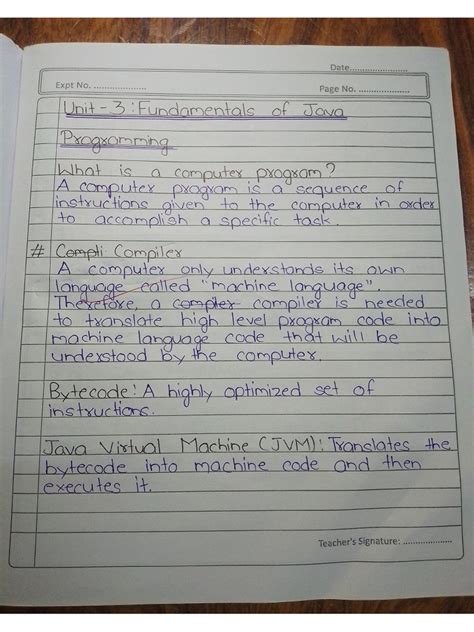 Date......................
Expt No. ......................
Page No. ......................
Unit - 3 : Fundamentals of Java
Programming
What is a computer program?
A computer program is a sequence of
instructions given to the computer in order
to accomplish a specific task.
# Compli Compiler
A computer only understands its own
language called "machine language".
Therefore, a compler compiler is needed
to translate high level program code into
machine language code that will be
understood by the computer.
Bytecode: A highly optimized set of
instructions.
Java Virtual Machine (JVM): Translates the
bytecode into machine code and then
executes it.
Teacher's Signature: ......................